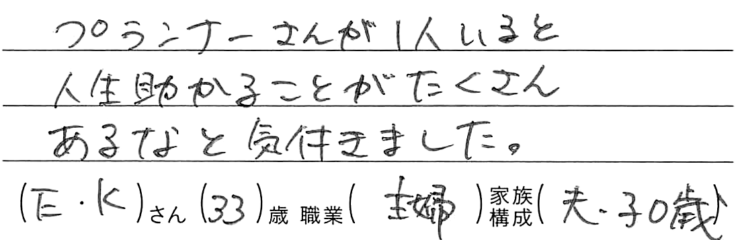 プランナーさんが1人いると
人生助かることがたくさん
あるなと気付きました。
(E・K)さん (33)歳 職業(主婦)家族構成(夫・子0歳)